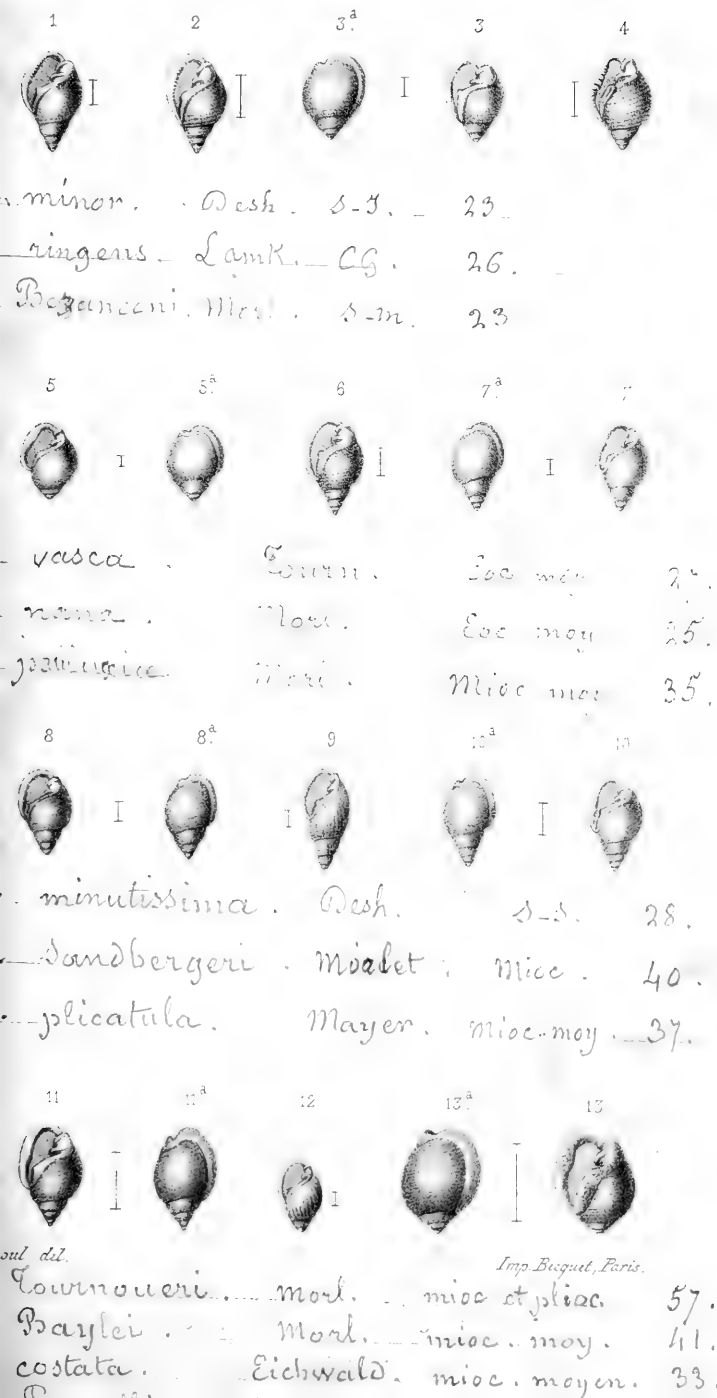 1 2 3ª. 3 4
minor. Desh. S-I. 23
ringens. Lamk. CG. 26.
S-m. 23
5 5ª. 6 7ª. 7
vasca. Tourn. moy
nana. Morl. Eoc moy 25.
Morl. Mioc 35.
8 8ª. 9 10ª 10
minutissima. Desh. S-S. 28.
Sandbergeri. Mioc. 40.
plicatula. Mayer. mioc-moy. 37.
11 11ª 12 13ª. 13
del.
Imp. Becquet, Paris.
Tournoueri. Morl. mioc et plioc. 57.
Baylei. Morl. mioc. moy. 41.
costata. Eichwald. mioc. moyen. 33.